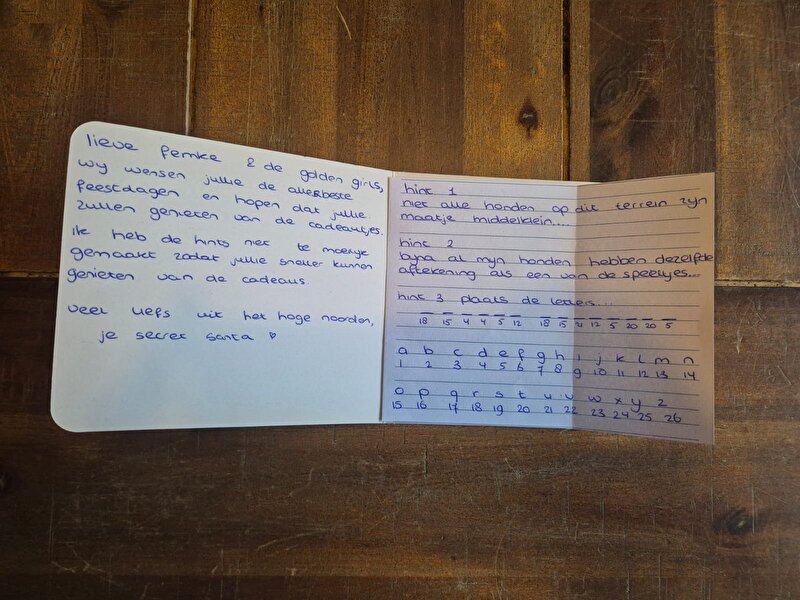 lieve Femke & de golden girls,
wij wensen jullie de allerbeste
feestdagen en hopen dat jullie
zullen genieten van de cadeautjes.
ik heb de hints niet te moeilijk
gemaakt zodat jullie sneller kunnen
genieten van de cadeaus.
veel liefs uit het hoge noorden,
je secret santa ♡
hint 1
niet alle honden op dit terrein zijn
maatje middelklein....
hint 2
bijna al mijn honden hebben dezelfde
aftekening als een van de speeltjes...
hint 3 plaats de letters....
18 15 4 4 5 12 18 15 21 12 5 20 20 5
a b c d e f g h i j k l m n
1 2 3 4 5 6 7 8 9 10 11 12 13 14
o p q r s t u v w x y z
15 16 17 18 19 20 21 22 23 24 25 26